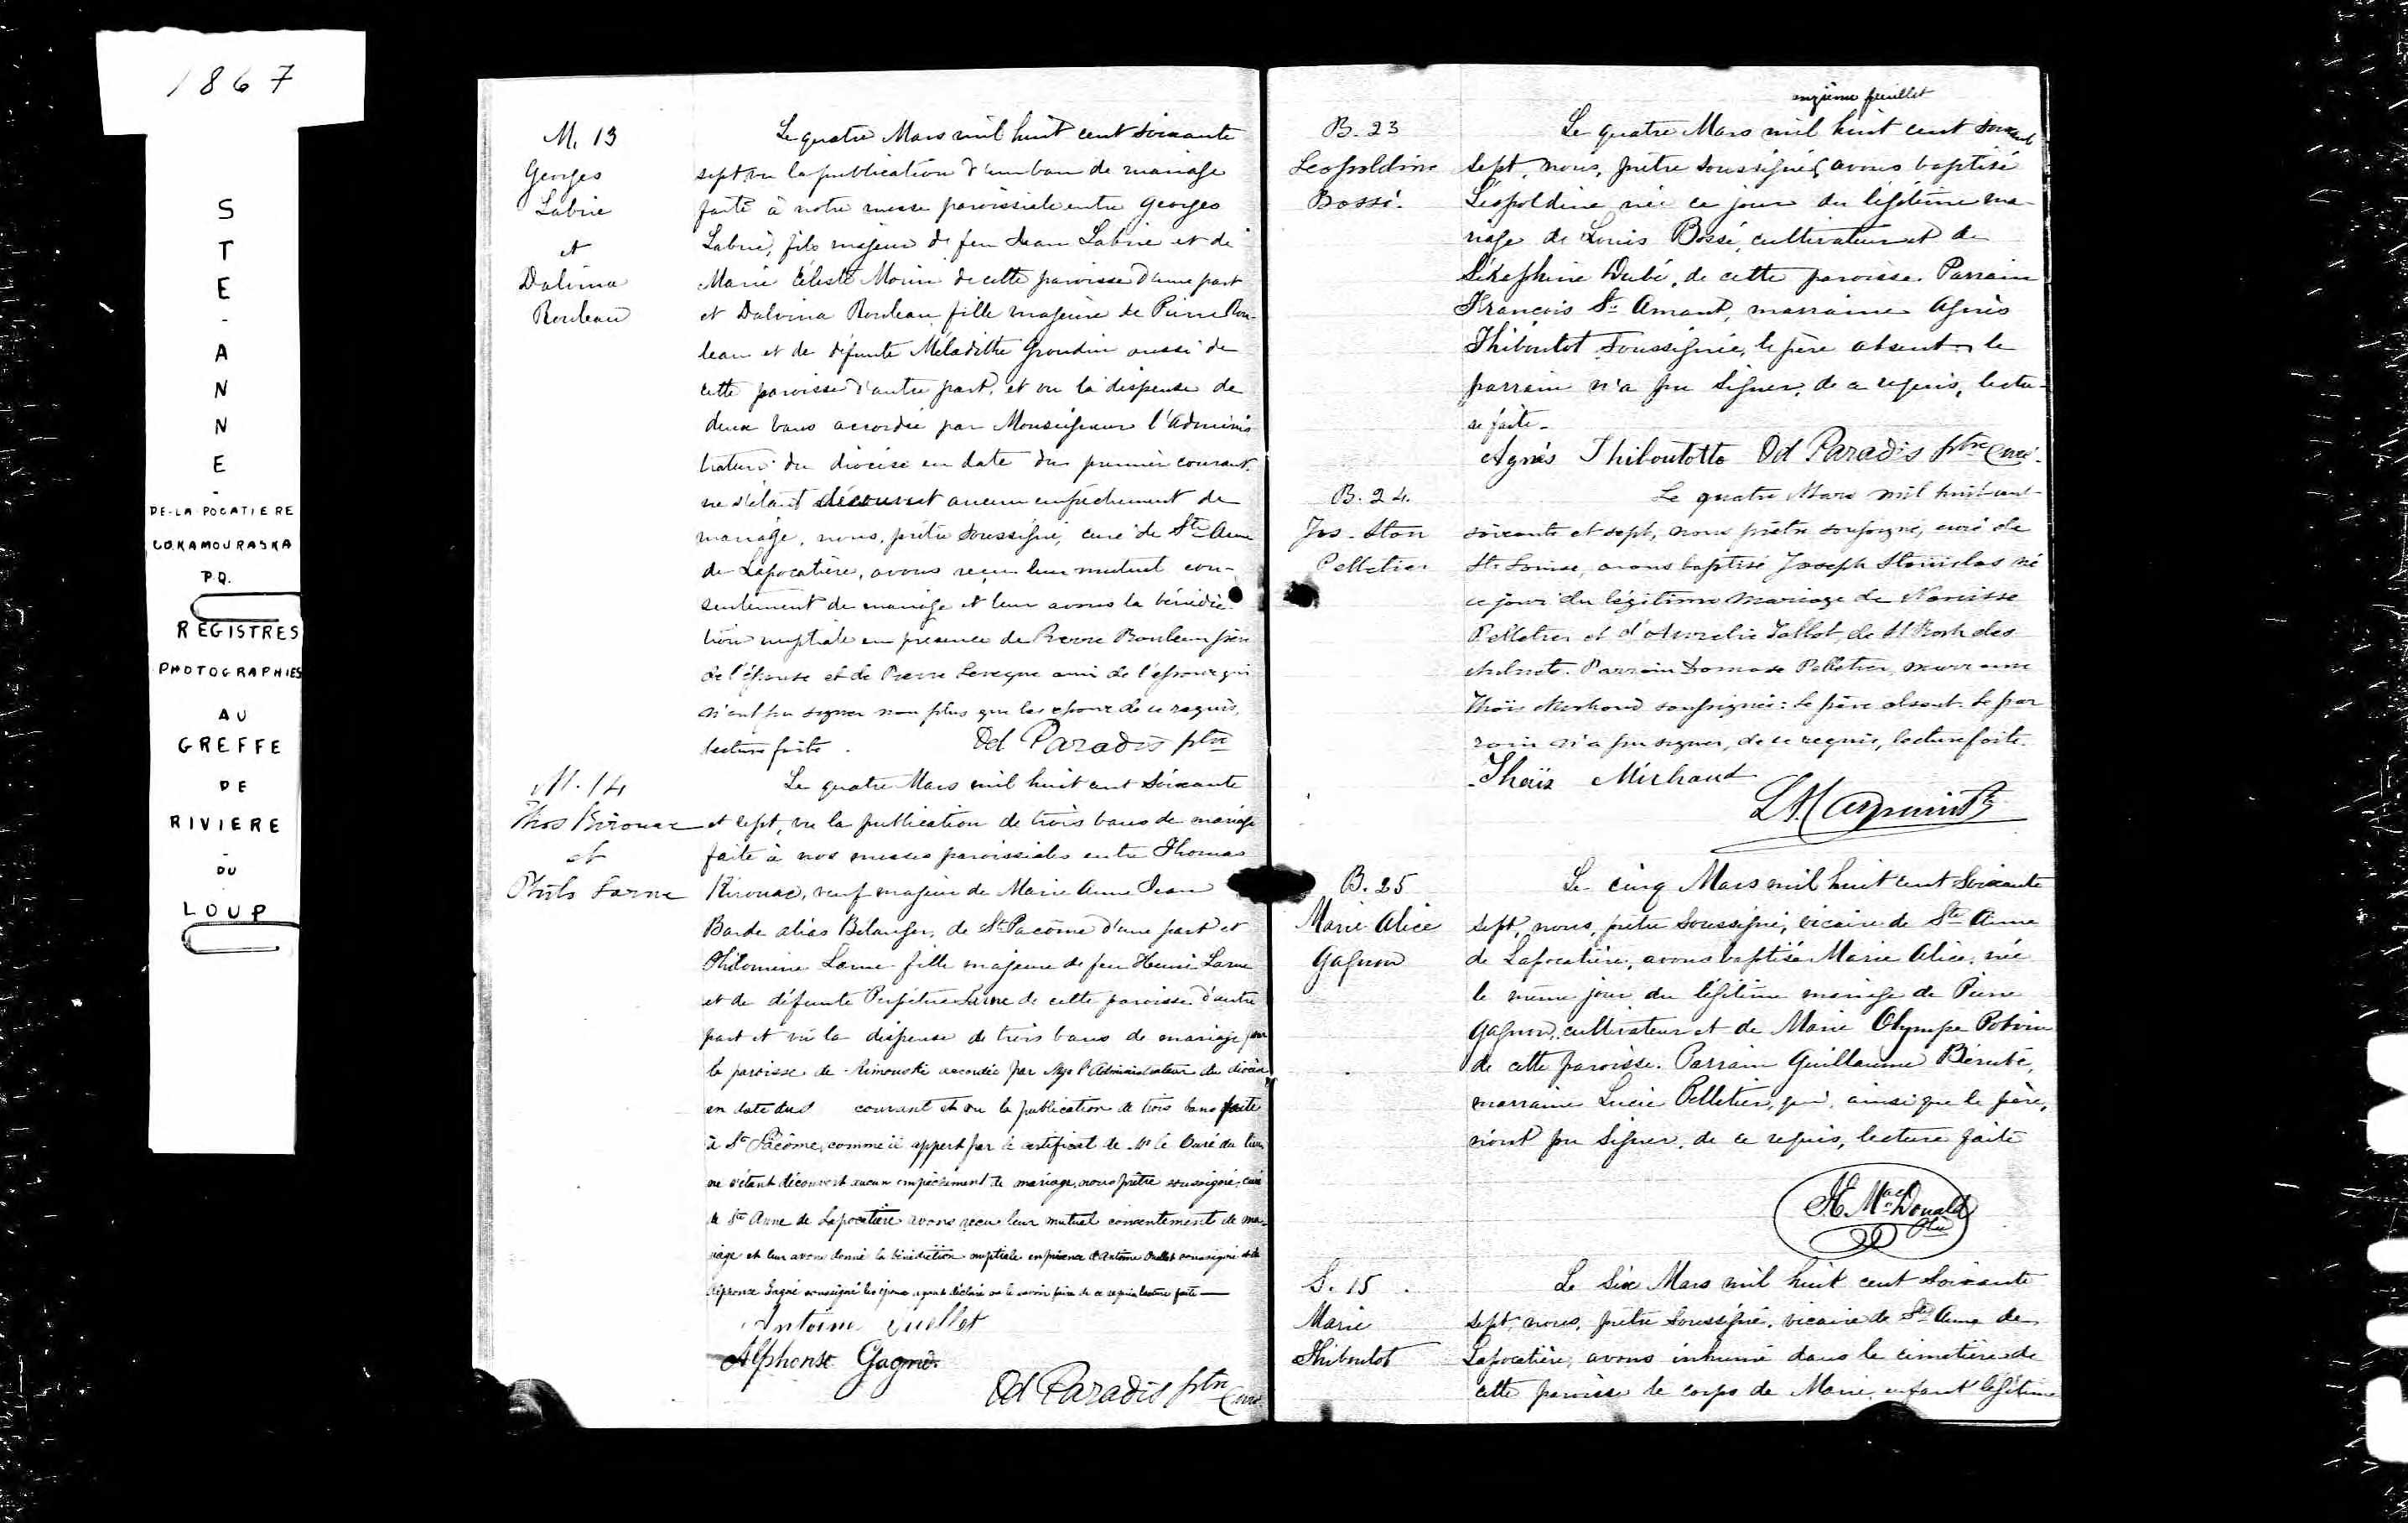 1867
STE-ANNE-
DE-LA POCATIERE
CO. KAMOURASKA
P.Q.
REGISTRES
PHOTOGRAPHIES
AU
GREFFE
DE
RIVIERE
-
DU
LOUP
M. 13
Georges
Labrie
et
Dalvina
Rouleau
Le quatre Mars mil huit cent soixante
sept, vu la publication d'un ban de mariage
faite à notre messe paroissiale entre Georges
Labrie, fils majeur de feu Jean Labrie et de
Marie Céleste Morin de cette paroisse d'une part
et Dalvina Rouleau fille majeure de Pierre Rou-
leau et de défunte Grondin aussi de
cette paroisse d'autre part, et vu la dispense de
deux bans accordée par Monseigneur l'Adminis
trateur du diocèse en date du premier courant.
ne s'étant découvert aucun empêchement de
mariage, nous, prêtre soussigné, curé de Ste Anne
de Lapocatière, avons reçu leur mutuel con-
sentement de mariage et leur avons la bénédic-
tion nuptiale en présence de Pierre Rouleau père
de l'épouse et de Pierre Leveque ami de l'époux qui
n'ont pu signer non plus que les epoux de ce requis,
lecture faite. Od Paradis ptre
M. 14
Thos Kirouac
et
Philo Larue
Le quatre Mars mil huit cent soixante
et sept, vu la publication de trois bans de mariage
faite à nos messes paroissiales entre Thomas
Kirouac, veuf majeur de Marie Anne Jean
Barde alias Belanger, de St Pacôme d'une part et
Philomène Larue fille majeure de feu Henri Larue
et de défunte Perpétue Larue de cette paroisse d'autre
part et vu la dispense de trois bans de mariage pour
la paroisse de Rimouski accordée par Mgr l'Administrateur du diocèse
en date du courant et vu la publication de trois bans faite
à St Pacôme, comme il appert par le certificat de Mr le Curé du lieu
ne s'étant découvert aucun empêchement de mariage, nous prêtre soussigné, curé
de Ste Anne de Lapocatière avons reçu leur mutuel consentement de ma-
riage et leur avons donné la bénédiction nuptiale en présence d'Antoine Ouellet soussigné et de
Alphonse Gagné soussigné les époux ayant déclaré ne le savoir faire de ce requis lecture faite
Antoine Ouellet
Alphonse Gagné
Od Paradis ptre Curé
onzième feuillet
B. 23
Leopoldine
Bossé.
Le quatre Mars mil huit cent soixante
sept, nous, prêtre soussigné, avons baptisé
Léopoldine née ce jour du légitime ma-
riage de Louis Bossé, cultivateur et de
Séraphine Dubé, de cette paroisse. Parrain
François St Amant, marraine Agnès
Thiboutot soussignée, le père absent, le
parrain n'a pu signer, de ce requis, lectu-
re faite.
Agnès Thiboutotte Od Paradis ptre Curé.
B. 24.
Jos. Stan
Pelletier
Le quatre Mars mil huit cent
soixante et sept, nous prêtre soussigné, curé de
Ste Louise, avons baptisé Joseph Stanislas né
ce jour du légitime mariage de Narcisse
Pelletier et d'Aurelie Talbot de St Roch des
Aulnets. Parrain Damase Pelletier, marraine
Thaïs Michaud soussignée: le père absent. Le par
rain n'a pu signer, de ce requis, lecture faite.
Thaïs Michaud
B. 25
Marie Alice
Gagnon
Le cinq Mars mil huit cent soixante
sept, nous, prêtre soussigné, vicaire de Ste Anne
de Lapocatière, avons baptisé Marie Alice, née
le même jour du légitime mariage de Pierre
Gagnon, cultivateur et de Marie Olympe Potvin
de cette paroisse. Parrain Guillaume Bérubé,
marraine Lucie Pelletier, qui, ainsi que le père,
n'ont pu signer, de ce requis, lecture faite
H. MacDonald
Ptre
S. 15.
Marie
Thiboutot
Le Six Mars mil huit cent soixante
sept, nous, prêtre soussigné, vicaire de Ste Anne de
Lapocatière, avons inhumé dans le cimetière de
cette paroisse le corps de Marie, enfant légitime